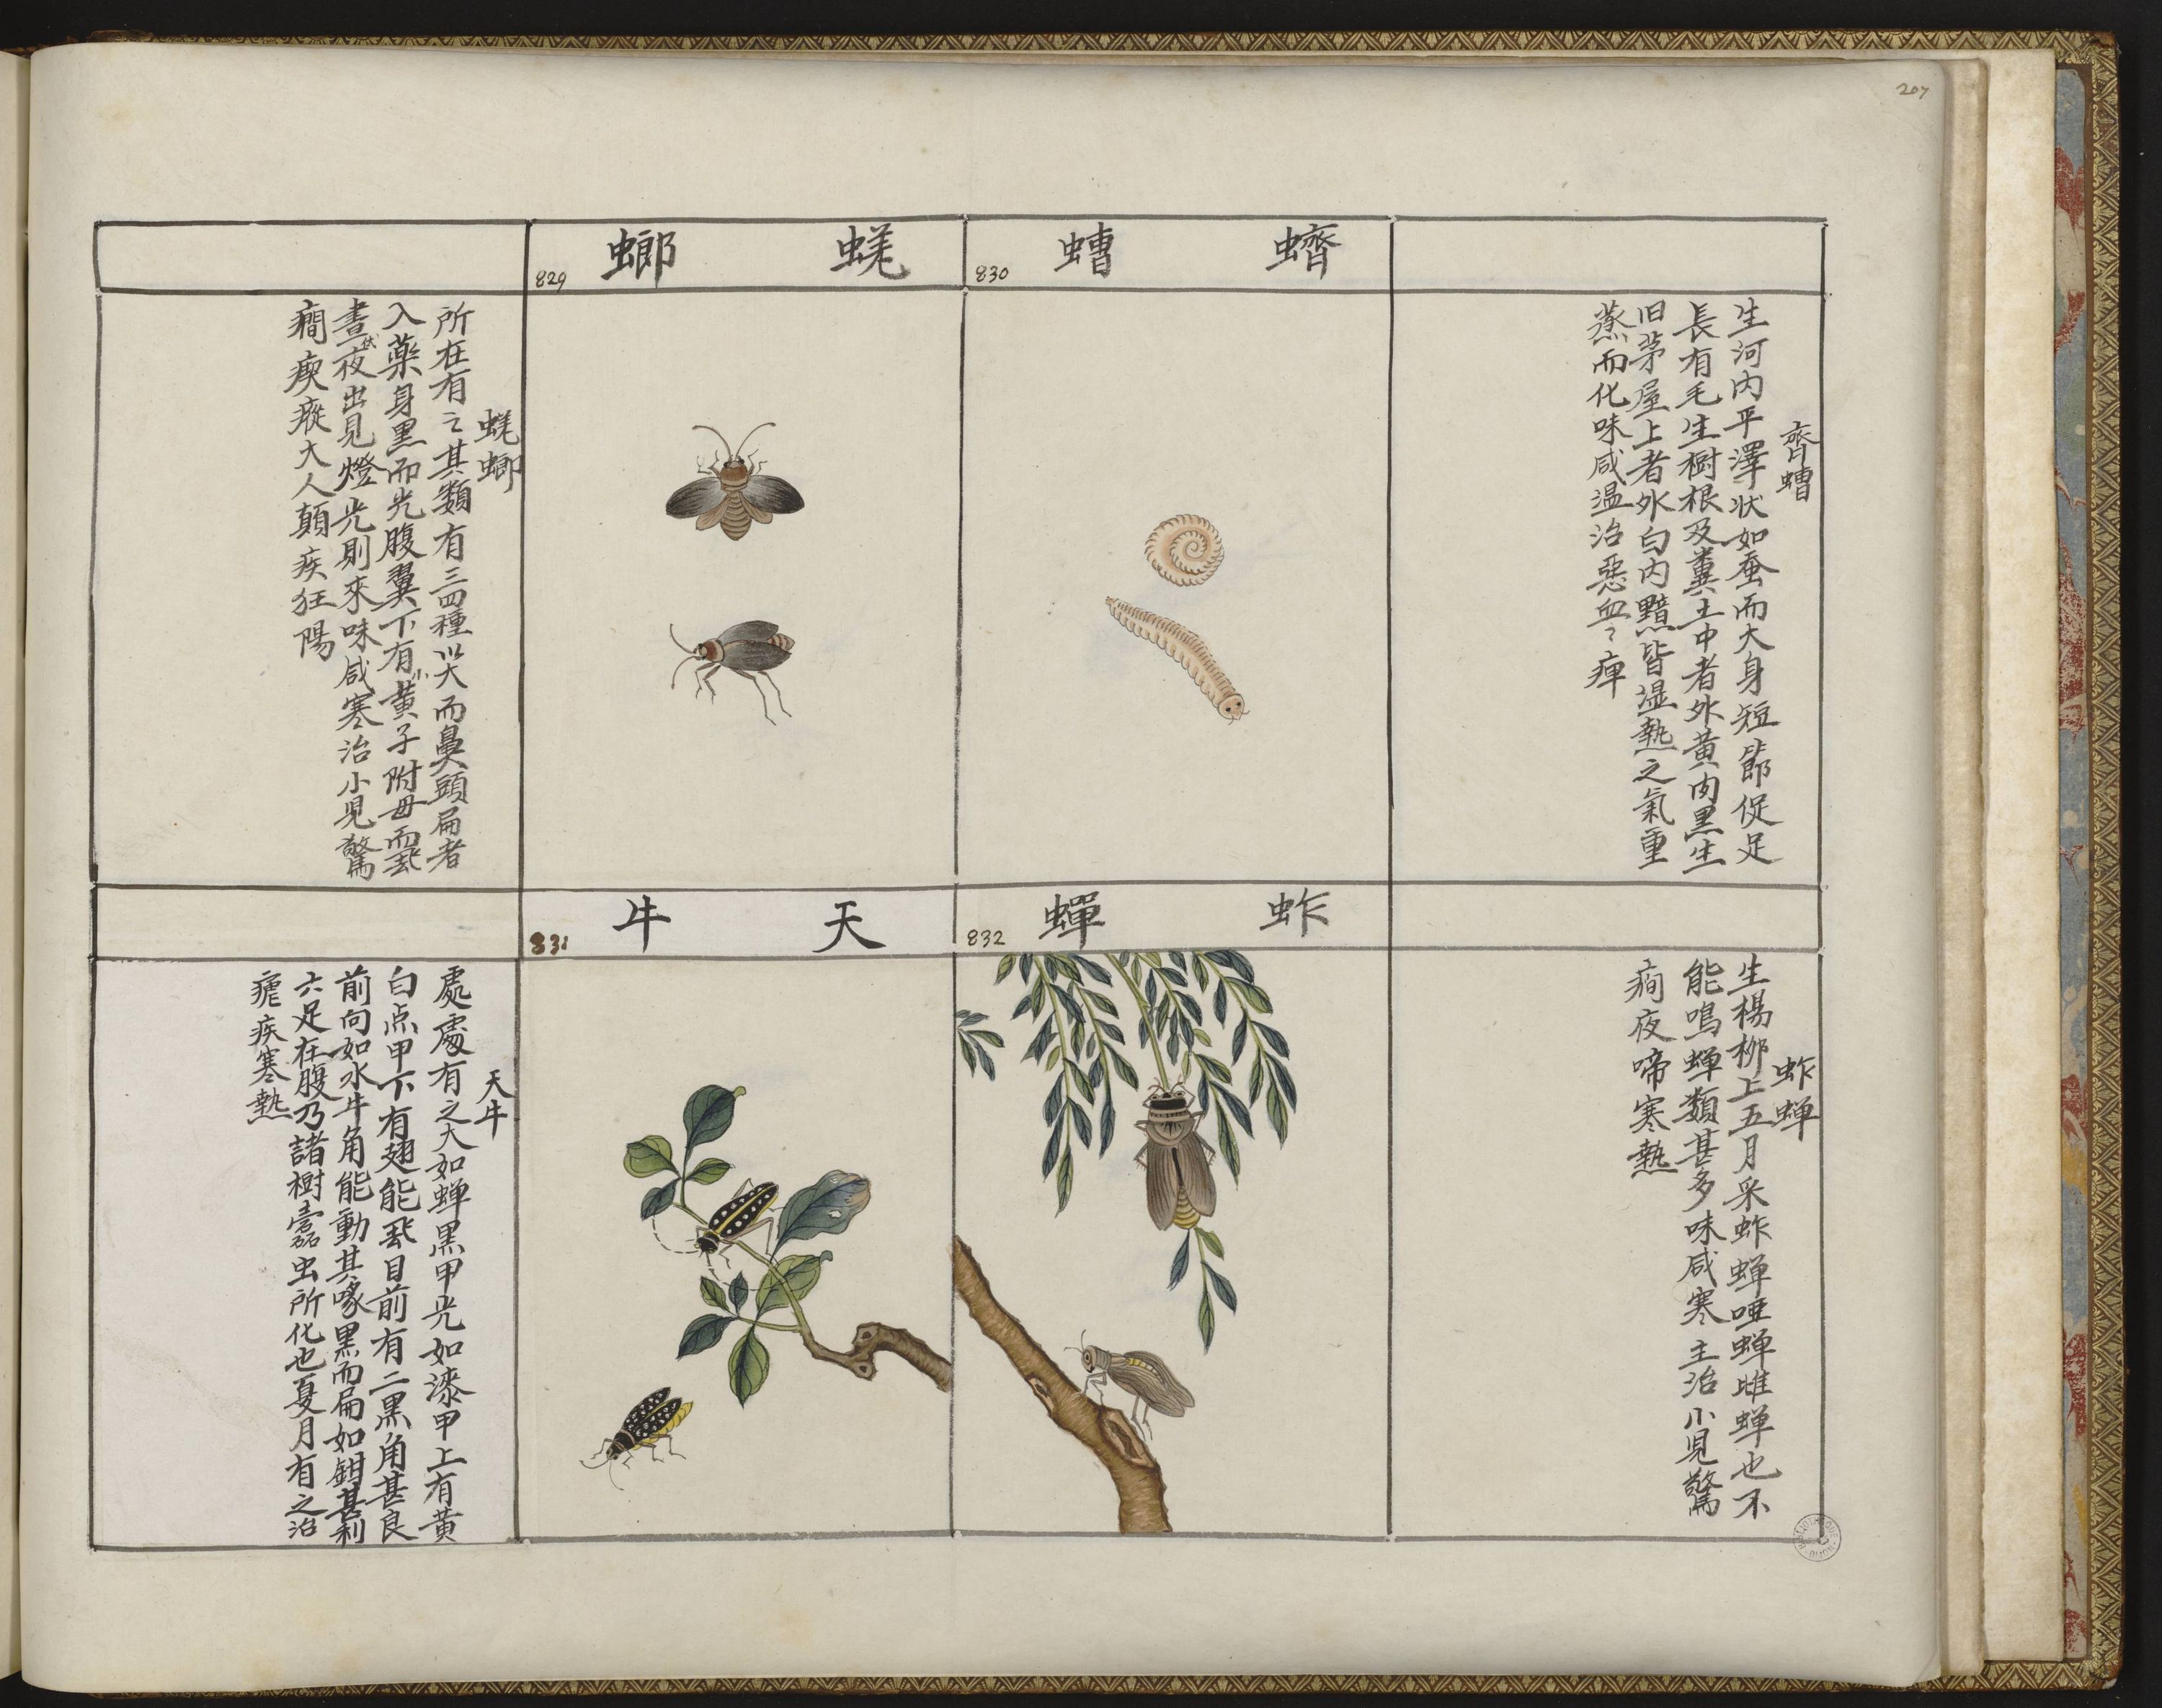 207
蠐 螬
830
蜣 螂
829
齊螬
生河内平澤状如蚕而大身短節促足
長有毛生樹根及糞土中者外黄内黒生
旧茅屋上者外白内黯皆湿熱之氣重
蒸而化味咸温治惡血〻痺
蜣螂
所在有之其類有三四種以大而鼻頭扁者
入藥身黒而光腹翼下有小黄子附母而飛
晝伏夜出見燈光則來味咸寒治小児驚
癇瘈瘲大人顛疾狂陽
蚱 蟬
832
天 牛
831
蚱蝉
生楊柳上五月采蚱蝉啞蝉雌蝉也不
能鳴蝉類甚多味咸寒主治小児驚
癎夜啼寒熱
天牛
處處有之大如蝉黒甲光如漆甲上有黄
白点甲下有翅能飛目前有二黒角甚良
前向如水牛角能動其喙黒而扁如鉗甚利
六足在腹乃諸樹蠹虫所化也夏月有之治
瘧疾寒熱